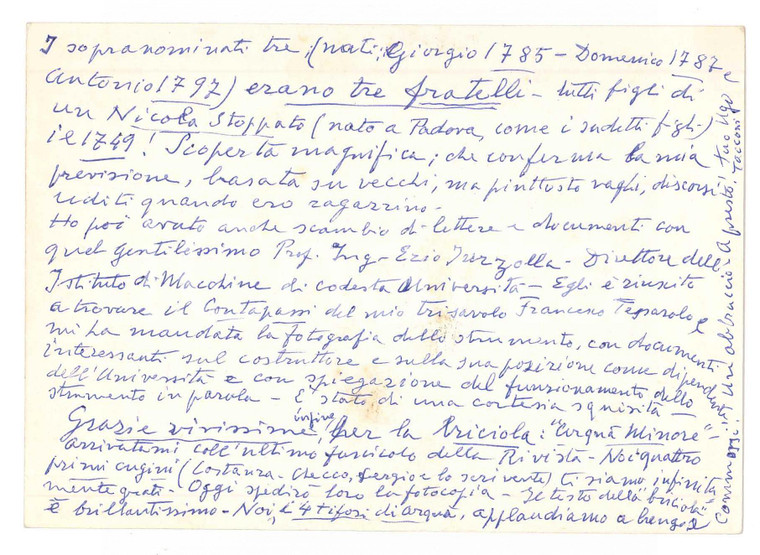 I sopranominati tre, (nati: Giorgio 1785 - Domenico 1787 e
Antonio 1797) erano tre fratelli - tutti figli di
un Nicola Stoppato (nato a Padova, come i sudetti figli)
il 1749! Scoperta magnifica; che conferma la mia
previsione, basata su vecchi, ma piuttosto vaghi, discorsi
uditi quando ero ragazzino -
Ho poi avuto anche scambio di lettere e documenti con
quel gentilissimo Prof. Ing. Ezio - Direttore dell'
Istituto di Macchine di codesta Università - Egli è riuscito
a trovare il Contapassi del mio trisavolo Francesco Tessarolo e
mi ha mandata la fotografia dello strumento, con documenti
interessanti sul costruttore e sulla sua posizione come dipendente
dell'Università e con spiegazione del funzionamento dello
strumento in parola - E' stato di una cortesia squisita -
Grazie vivissime, infine, per la briciola: "Arquà Minore" -
arrivatami coll'ultimo fascicolo della Rivista - Noi quattro
primi cugini (Costanza - Checco, Sergio e lo scrivente) ti siamo infinita
mente grati - Oggi spedirò loro la fotocopia - Il testo della "briciola"
è brillantissimo - Noi, i 4 tifosi di Arquà, applaudiamo a lungo e
commossi! Un abbraccio - A presto! tuo Ugo
Tacconi